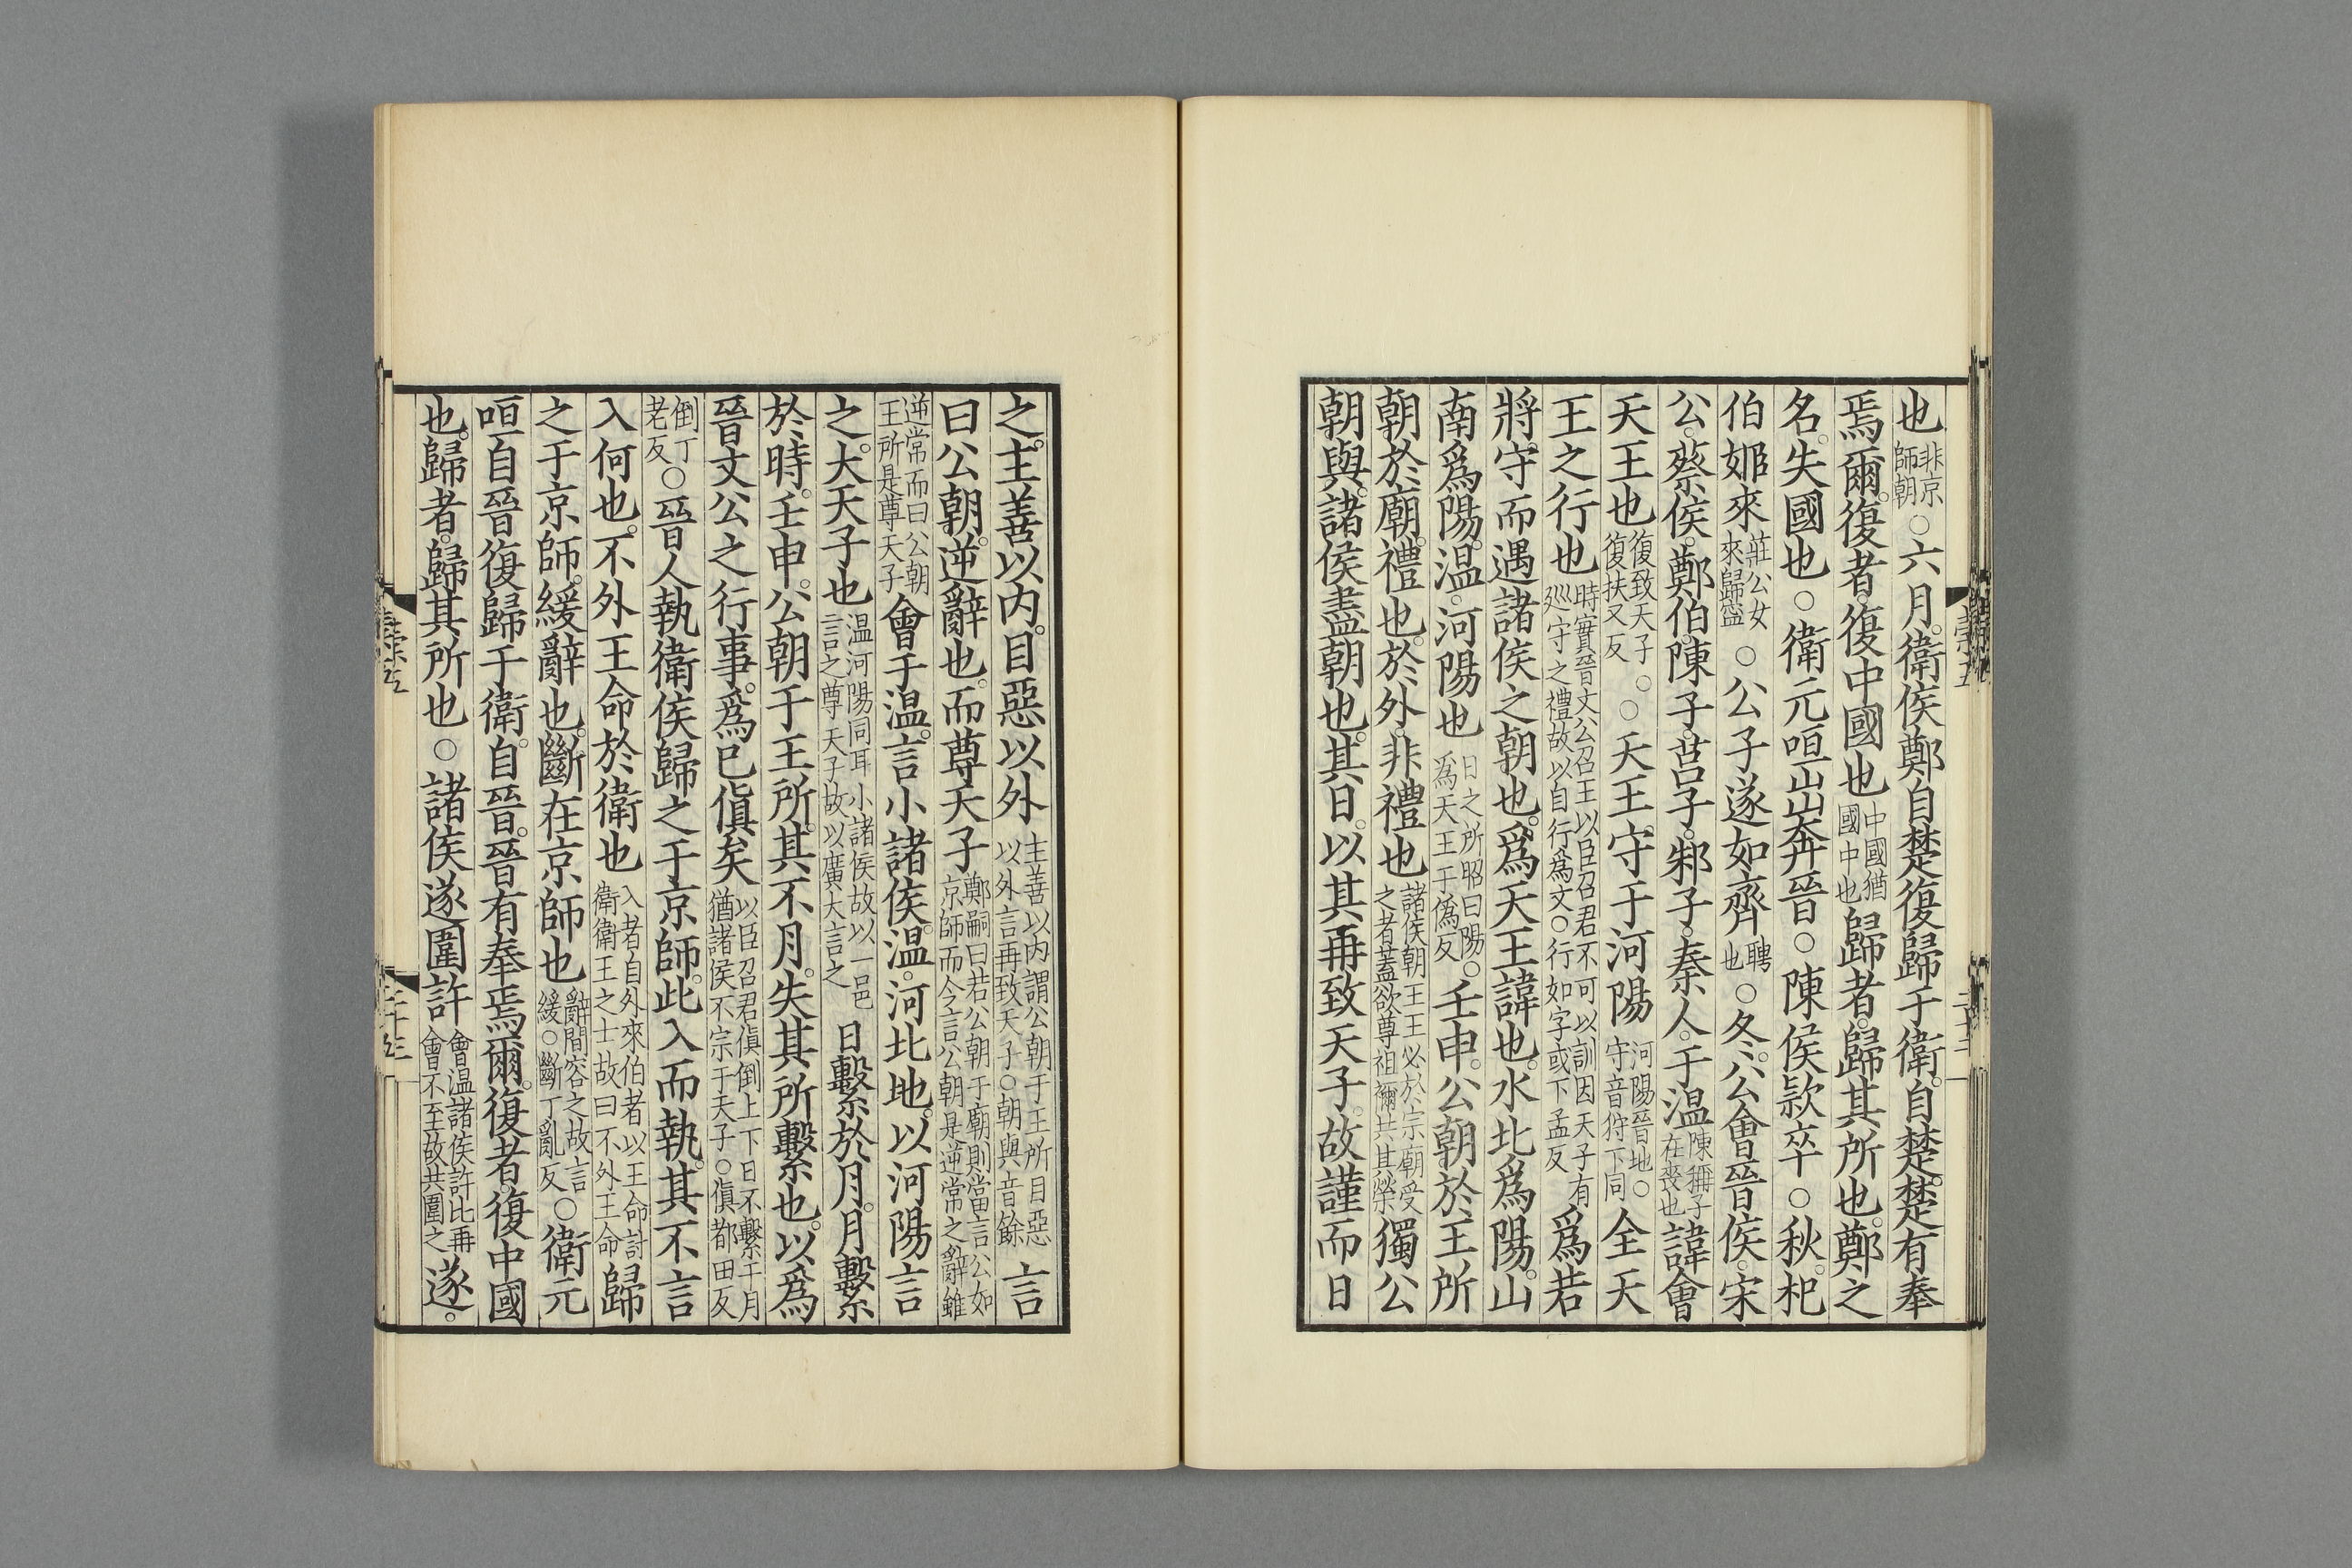 也非京師朝○六月。衛侯鄭自楚復歸于衛。自楚。楚有奉
焉爾。復者。復中國也中國猶國中也歸者。歸其所也。鄭之
名。失國也○衛元咺出奔晉○陳侯款卒○秋。杞
伯姬來莊公女來歸寧○公子遂如齊聘也○冬。公會晉侯。宋
公。蔡侯。鄭伯。陳子。莒子。邾子。秦人。于温陳稱子在喪也諱會
天王也復致天子。復扶又反○天王守于河陽河陽晉地。守音狩下同全天
王之行也時實晉文公召王以臣召君不可以訓因天子有巡守之禮故以自行爲文○行如字或下孟反爲若
將守而遇諸侯之朝也。爲天王諱也。水北爲陽。山
南爲陽。温。河陽也日之所昭曰陽。爲天王于僞反○壬申。公朝於王所
朝於廟。禮也。於外。非禮也諸侯朝王王必於宗廟受之者蓋欲尊祖禰共其榮獨公
朝與。諸侯盡朝也。其日。以其再致天子。故謹而日
之。主善以内。目惡以外主善以内謂公朝于王所目惡以外言再致天子○朝與音餘言
曰公朝。逆辭也。而尊天子鄭嗣曰若公朝于廟則當言公如京師而今言公朝是逆常之辭雖
逆常而曰公朝王所是尊天子會于温。言小諸侯。温。河北地。以河陽言
之。大天子也温河陽同耳小諸侯故以一邑言之尊天子故以廣大言之日繫於月。月繫
於時。壬申。公朝于王所。其不月。失其所繫也。以爲
晉文公之行事。爲已傎矣以臣召君傎倒上下日不繫于月猶諸侯不宗于天子○傎都田反
倒丁老反○晉人執衛侯歸之于京師。此入而執。其不言
入何也。不外王命於衛也入者自外來伯者以王命討衛衛王之士故曰不外王命歸
之于京師。緩辭也。斷在京師也辭間容之故言緩○斷丁亂反○衛元
咺自晉復歸于衛。自晉。晉有奉焉爾。復者。復中國
也。歸者。歸其所也○諸侯遂圍許會温諸侯許比再會不至故共圍之遂。